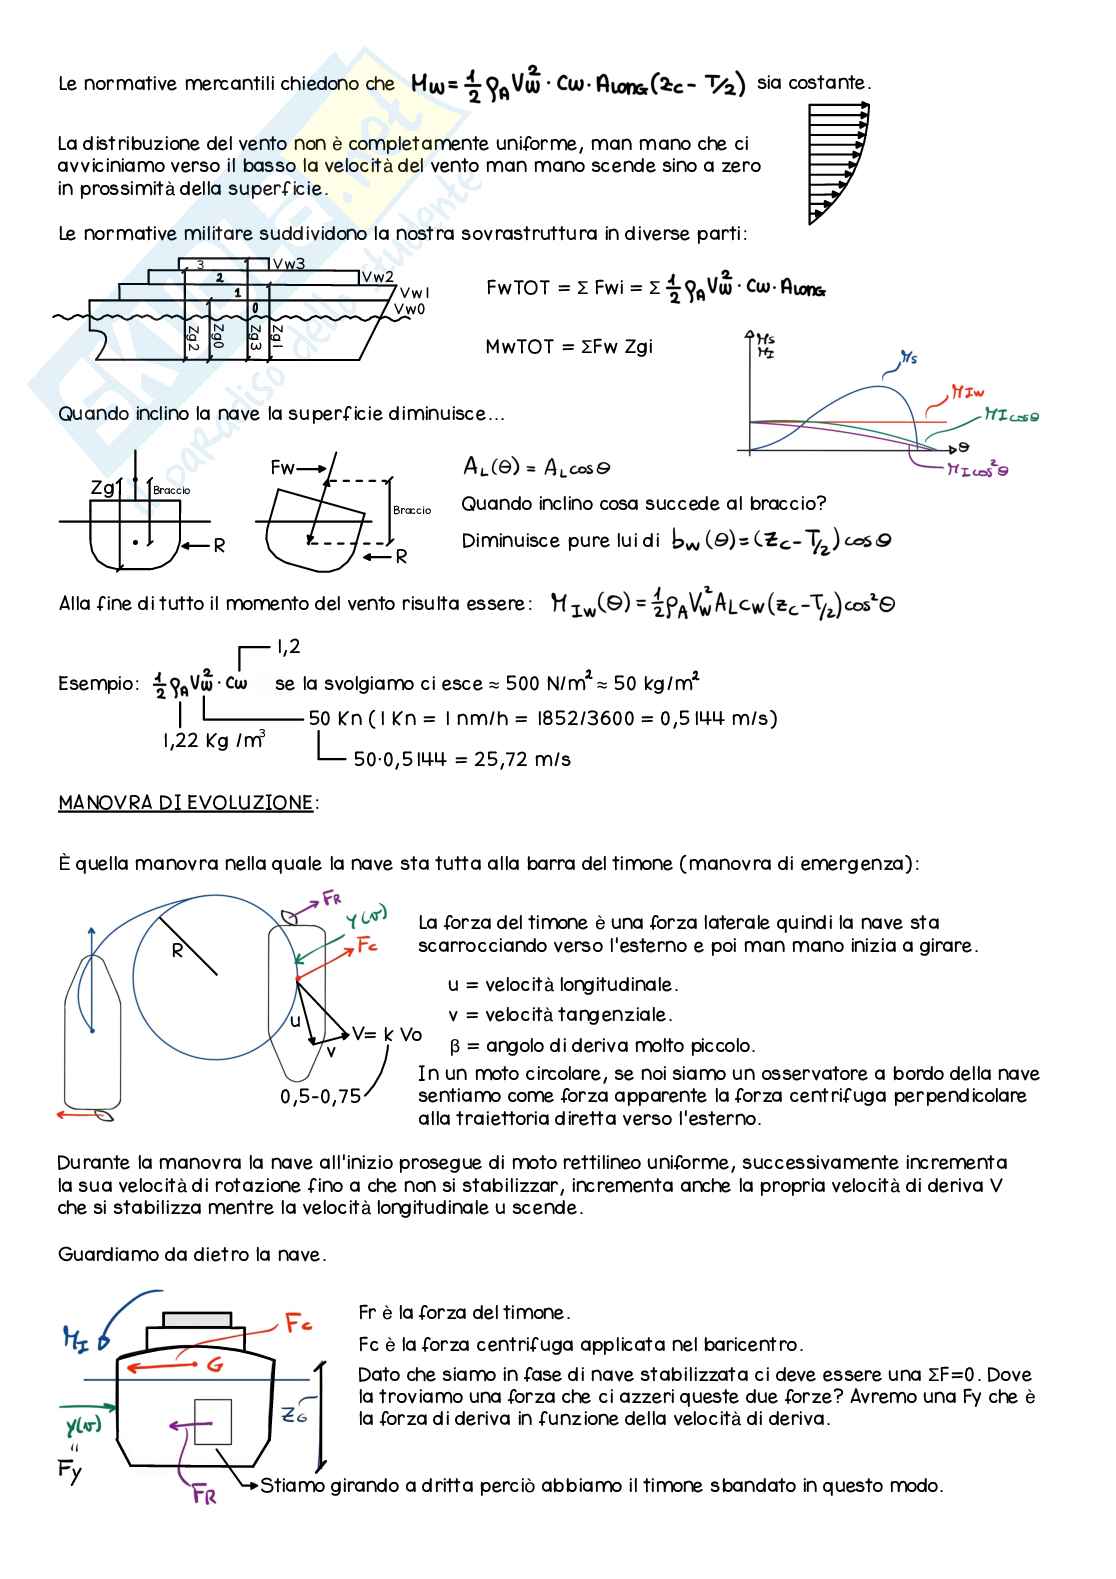 Le normative mercantili chiedono che M_W = 1/2 ρ_A V_W² · C_W · A_LONG (Z_C - T/2) sia costante.
La distribuzione del vento non è completamente uniforme, man mano che ci
avviciniamo verso il basso la velocità del vento man mano scende sino a zero
in prossimità della superficie.
Le normative militare suddividono la nostra sovrastruttura in diverse parti:
3 Vw3
2 Vw2
1 Vw1
0 Vw0
Zg2 Zg0 Zg3 Zg1
FwTOT = Σ Fwi = Σ 1/2 ρ_A V_W² · C_W · A_LONG
MwTOT = ΣFw Zgi
M_S
M_I
M_S
M_IW
M_I cosθ
θ
M_I cos²θ
Quando inclino la nave la superficie diminuisce...
Zg Braccio
R
Fw
Braccio
R
A_L(θ) = A_L cosθ
Quando inclino cosa succede al braccio?
Diminuisce pure lui di b_W(θ) = (Z_C - T/2) cosθ
Alla fine di tutto il momento del vento risulta essere: M_IW(θ) = 1/2 ρ_A V_W² A_L C_W (Z_C - T/2) cos²θ
1,2
Esempio: 1/2 ρ_A V_W² · C_W se la svolgiamo ci esce ≈ 500 N/m² ≈ 50 kg/m²
50 Kn (1 Kn = 1 nm/h = 1852/3600 = 0,5144 m/s)
1,22 Kg /m³
50·0,5144 = 25,72 m/s
MANOVRA DI EVOLUZIONE:
È quella manovra nella quale la nave sta tutta alla barra del timone (manovra di emergenza):
R
F_R
Y(v)
F_C
u
v
V= k Vo
0,5-0,75
La forza del timone è una forza laterale quindi la nave sta
scarrocciando verso l'esterno e poi man mano inizia a girare.
u = velocità longitudinale.
v = velocità tangenziale.
β = angolo di deriva molto piccolo.
In un moto circolare, se noi siamo un osservatore a bordo della nave
sentiamo come forza apparente la forza centrifuga perpendicolare
alla traiettoria diretta verso l'esterno.
Durante la manovra la nave all'inizio prosegue di moto rettilineo uniforme, successivamente incrementa
la sua velocità di rotazione fino a che non si stabilizzar, incrementa anche la propria velocità di deriva V
che si stabilizza mentre la velocità longitudinale u scende.
Guardiamo da dietro la nave.
M_I
F_C
G
Y(v)
"
Fy
Z_G
F_R
Fr è la forza del timone.
Fc è la forza centrifuga applicata nel baricentro.
Dato che siamo in fase di nave stabilizzata ci deve essere una ΣF=0. Dove
la troviamo una forza che ci azzeri queste due forze? Avremo una Fy che è
la forza di deriva in funzione della velocità di deriva.
Stiamo girando a dritta perciò abbiamo il timone sbandato in questo modo.
SKUOLA.net
il paradiso dello studente